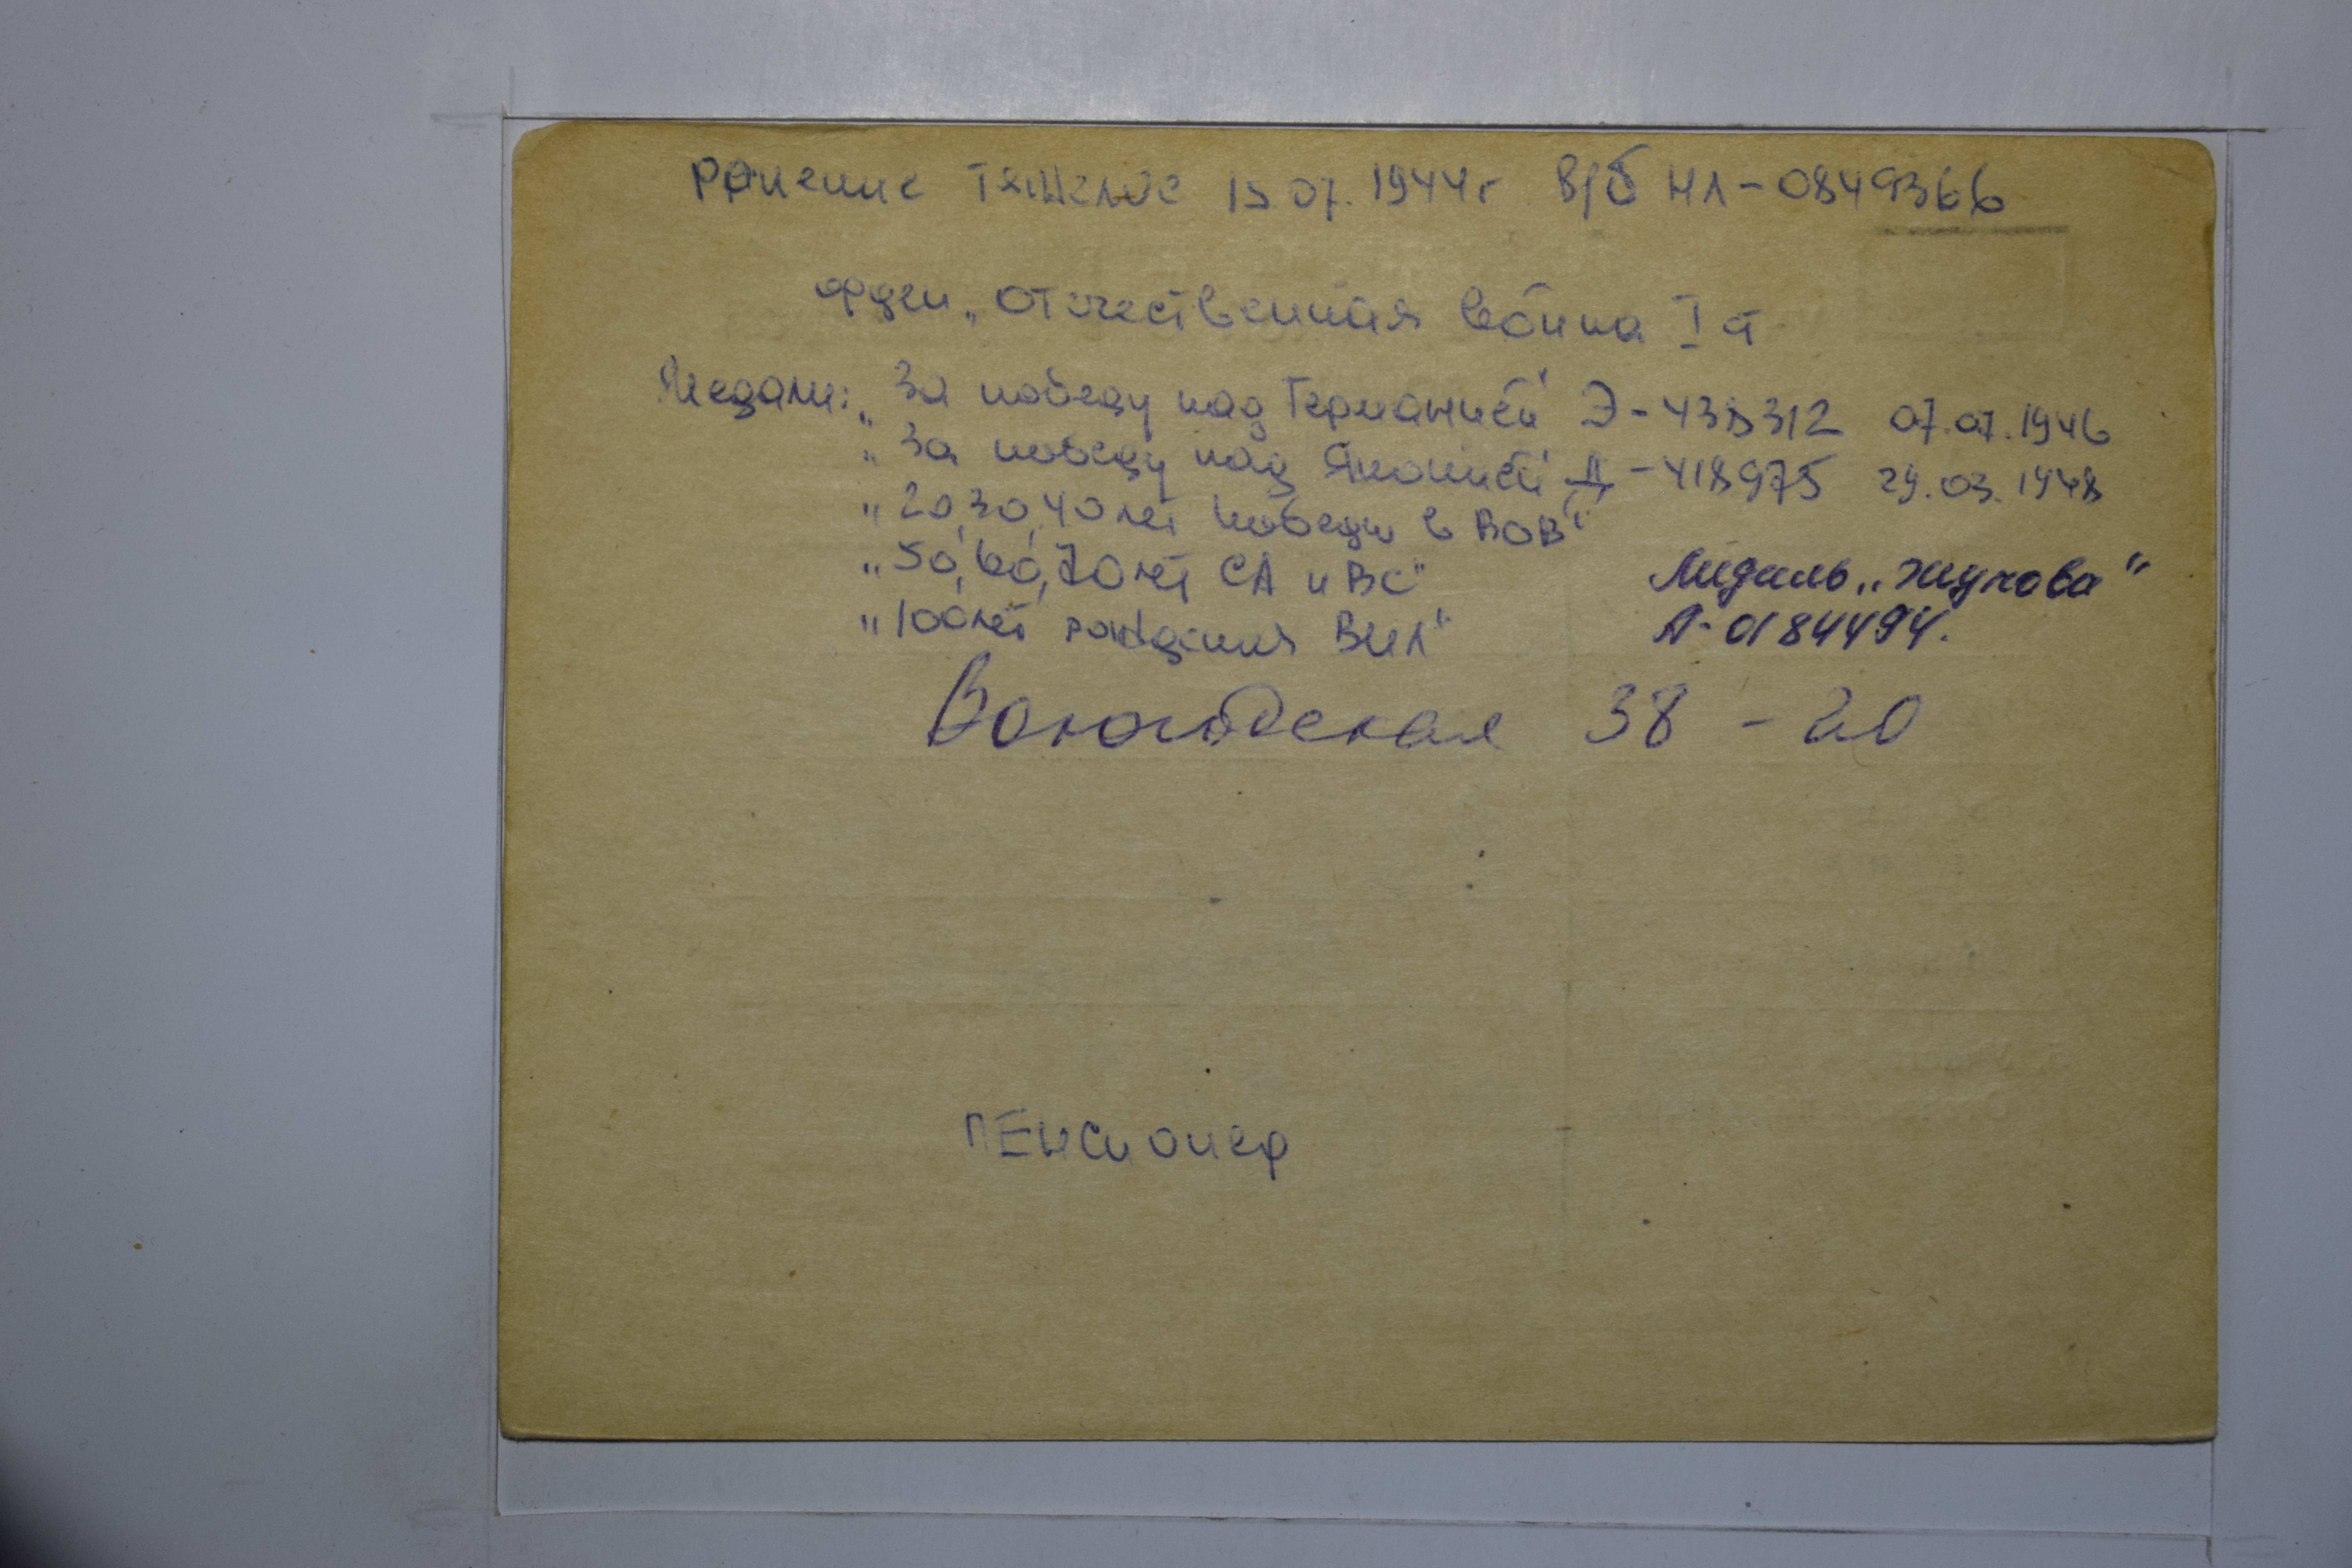 Ранение тяжелое 15.07.1944г В/б НЛ-0849366
орден „Отечественная война I ст
Медали: „За победу над Германией" Э-438312 07.07.1946
„За победу над Японией" Д-418975 29.03.1948
„20,30,40 лет победы в ВОВ"
„50,60,70 лет СА и ВС"
„100 лет рождения ВИЛ"
Медаль „Жукова"
А-0184494.
Вологодская 38-20
ПЕНСИОНЕР